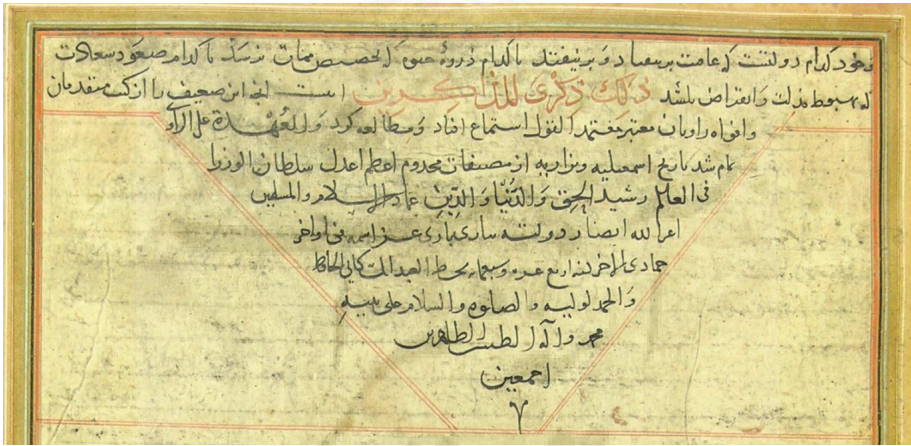 و خود کدام دولتست که عاقبت بر نیفتاد و بر نیفتد یا کدام ذروهٔ که بحضیض ممات نرسد یا کدام صعود سعادت
که بهبوط مذلت و انقراض باشد ذلك ذکری للذاکرین است انچه این ضعیف را از کتب متقدمان
و افواه راویان معتبر معتمد القول استماع افتاد و مطالعه کرد والعهدة علی الراوی
تمام شد تاریخ اسمعیلیه و نزاریه از مصنفات مخدوم اعظم اعدل سلطان الوزرا
فی العالم رشید الحق والدنیا والدین عماد الاسلام والمسلمین
اعز الله انصار دولته بباری عز اسمه فی اواخر
جمادی الاخر لسنه اربع عشره وسبعمایه بخط العبد الحافظ
والحمد لولیه والصلوه والسلام علی نبیه
محمد واله الطیبین الطاهرین
اجمعین